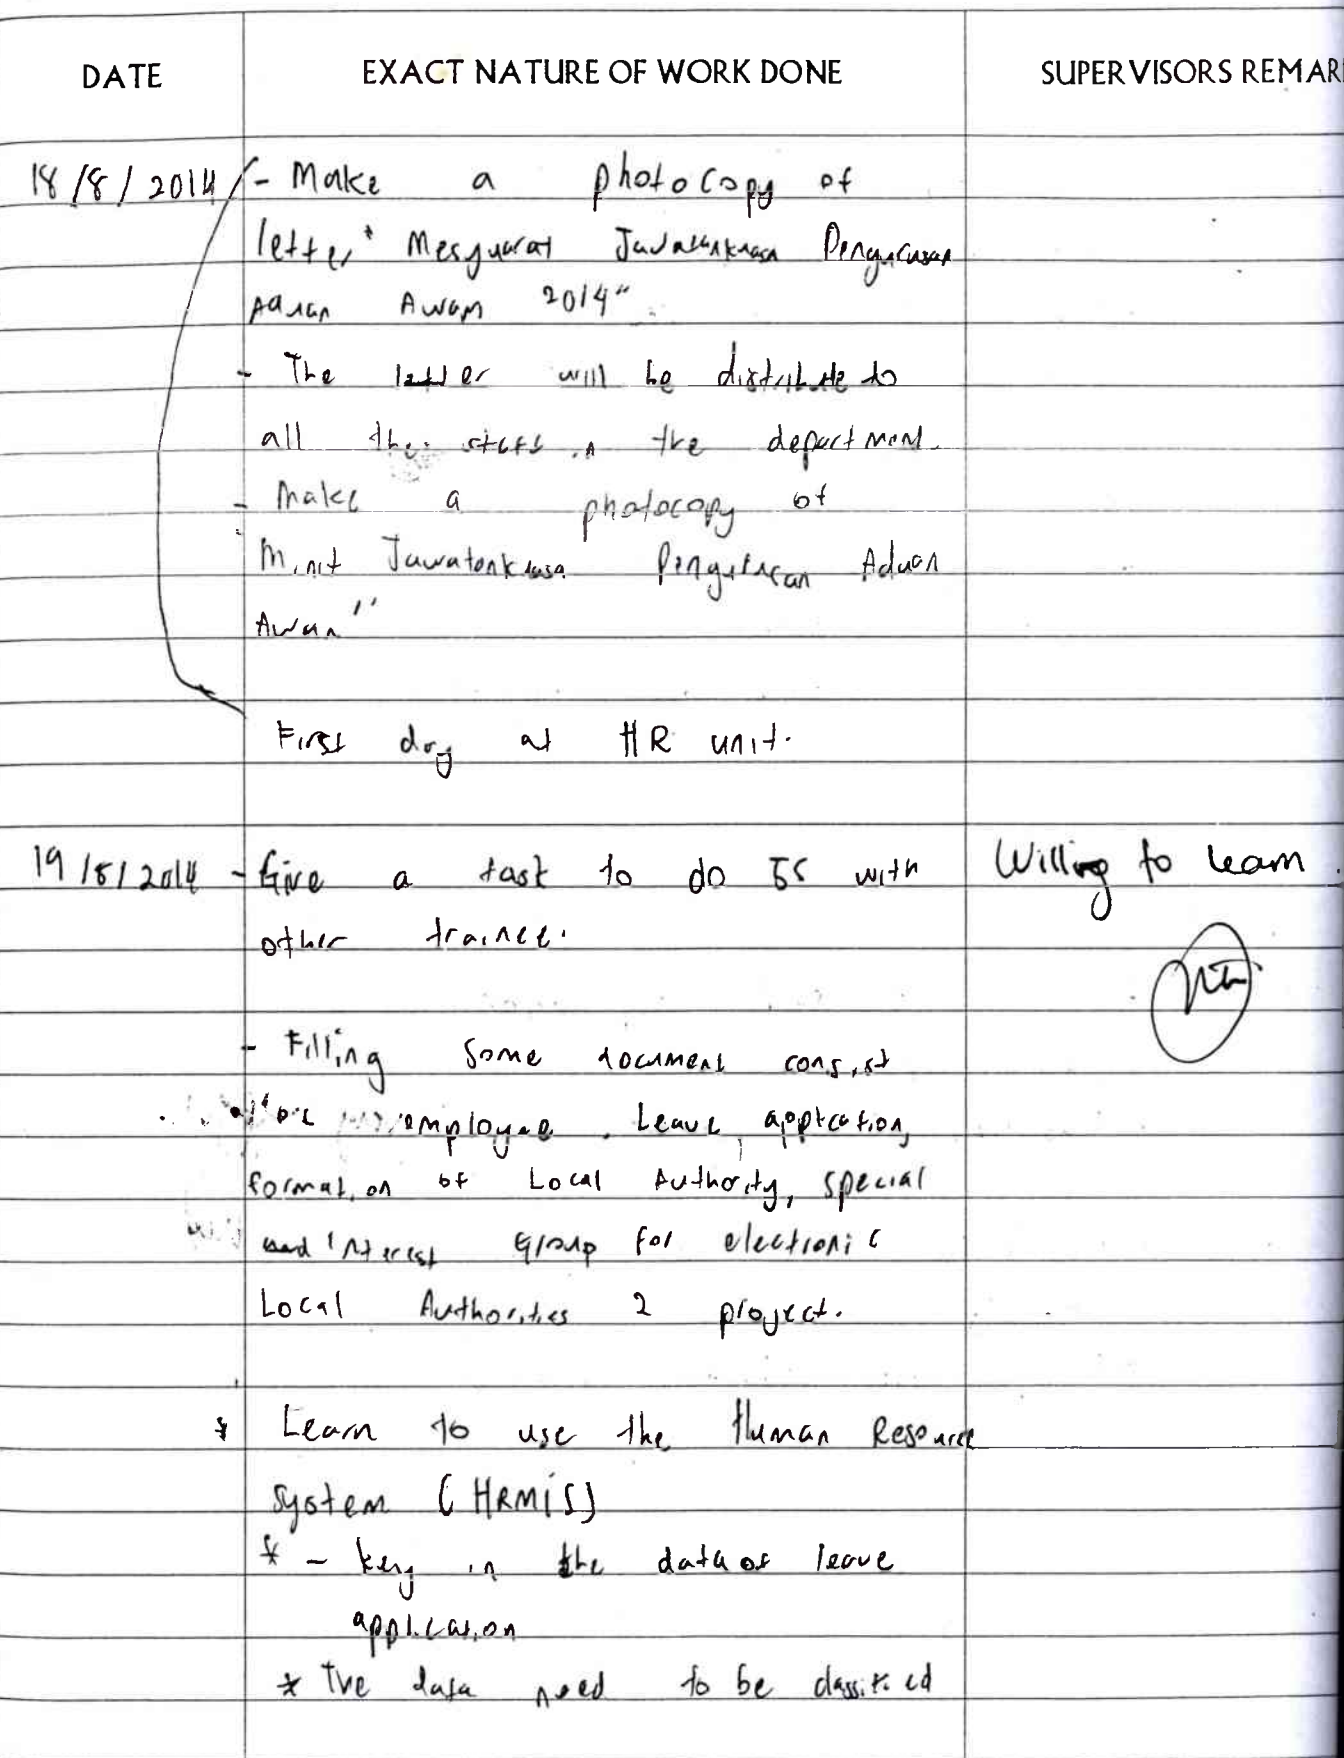 DATE EXACT NATURE OF WORK DONE SUPERVISORS REMAR
18/8/2014 - Make a photocopy of
letter " Mesyuarat Jawatankuasa Pengurusan
Aduan Awam 2014"
- The letter will be distribute to
all the staff in the department.
- Make a photocopy of
Minit Jawatankuasa Pengurusan Aduan
Awam"
First day at HR unit.
19/8/2014 - Give a task to do 5S with Willing to learn.
other trainee.
- Filling some document consist
employee Leave application,
formation of Local Authority, special
interest Group for electronic
Local Authorities 2 proyect.
* Learn to use the Human Resource
system (HRMIS)
* - key in the data of leave
application
* The data need to be classified